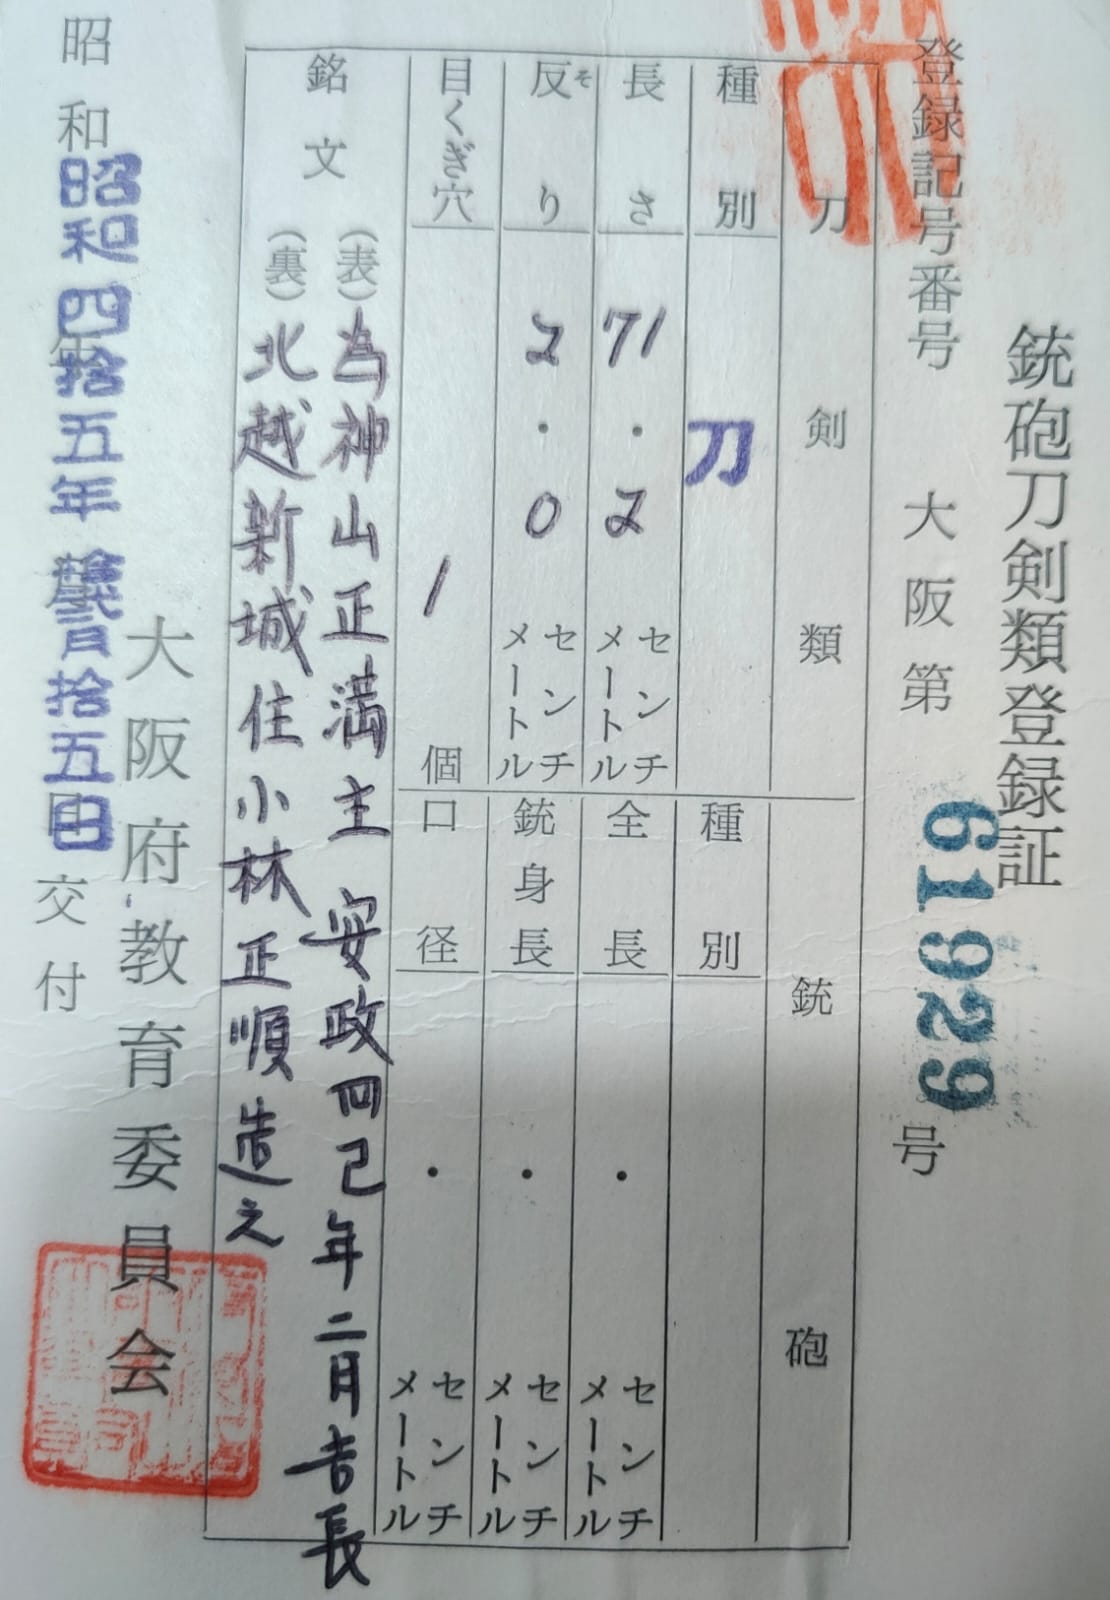 銃砲刀剣類登録証
登録記号番号 大阪第 61929 号
刀剣類
種別 刀
長さ 71.2 センチメートル
反り そ 2.0 センチメートル
目くぎ穴 1 個
銘文
(表) 為神山正満主 安政四己年二月吉長
(裏) 北越新城住小林正順造之
銃砲
種別
全長 . センチメートル
銃身長 . センチメートル
口径 . センチメートル
大阪府教育委員会
昭和 昭和四拾五年 月拾五日 交付